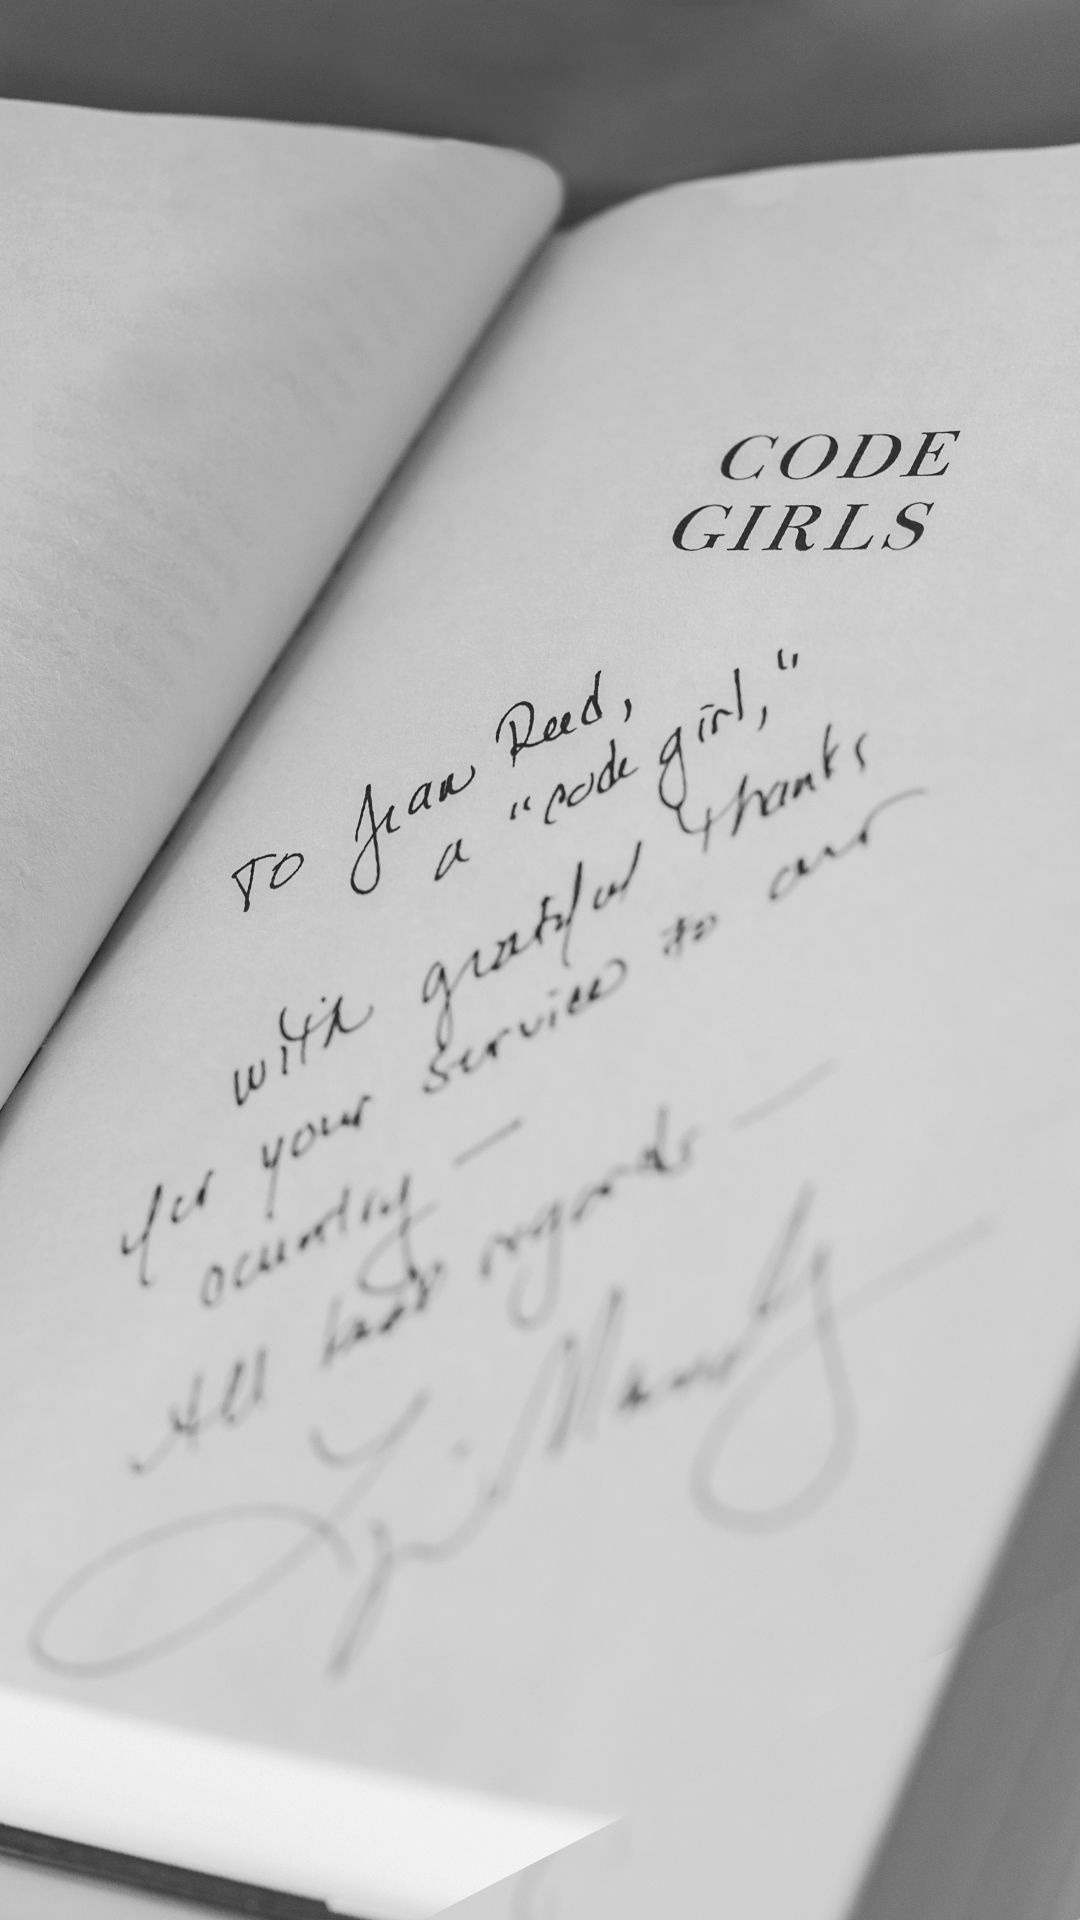 CODE
GIRLS
TO Jean Reed,
a "code girl,"
with grateful thanks
for your service to our
country —
All best regards —
Liza Mundy